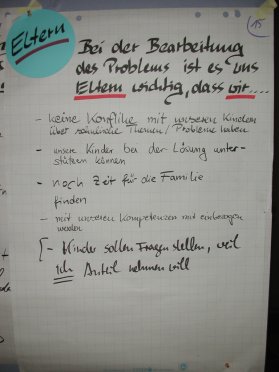 15
Eltern
Bei der Bearbeitung
des Problems ist es uns
Eltern wichtig, dass wir....
- keine Konflikte mit unseren Kindern
über schulische Themen/Probleme haben
- unsere Kinder bei der Lösung unter-
stützen können
- noch Zeit für die Familie
finden
- mit unseren Kompetenzen mit einbezogen
werden
- Kinder sollen Fragen stellen, weil
ich Anteil nehmen will